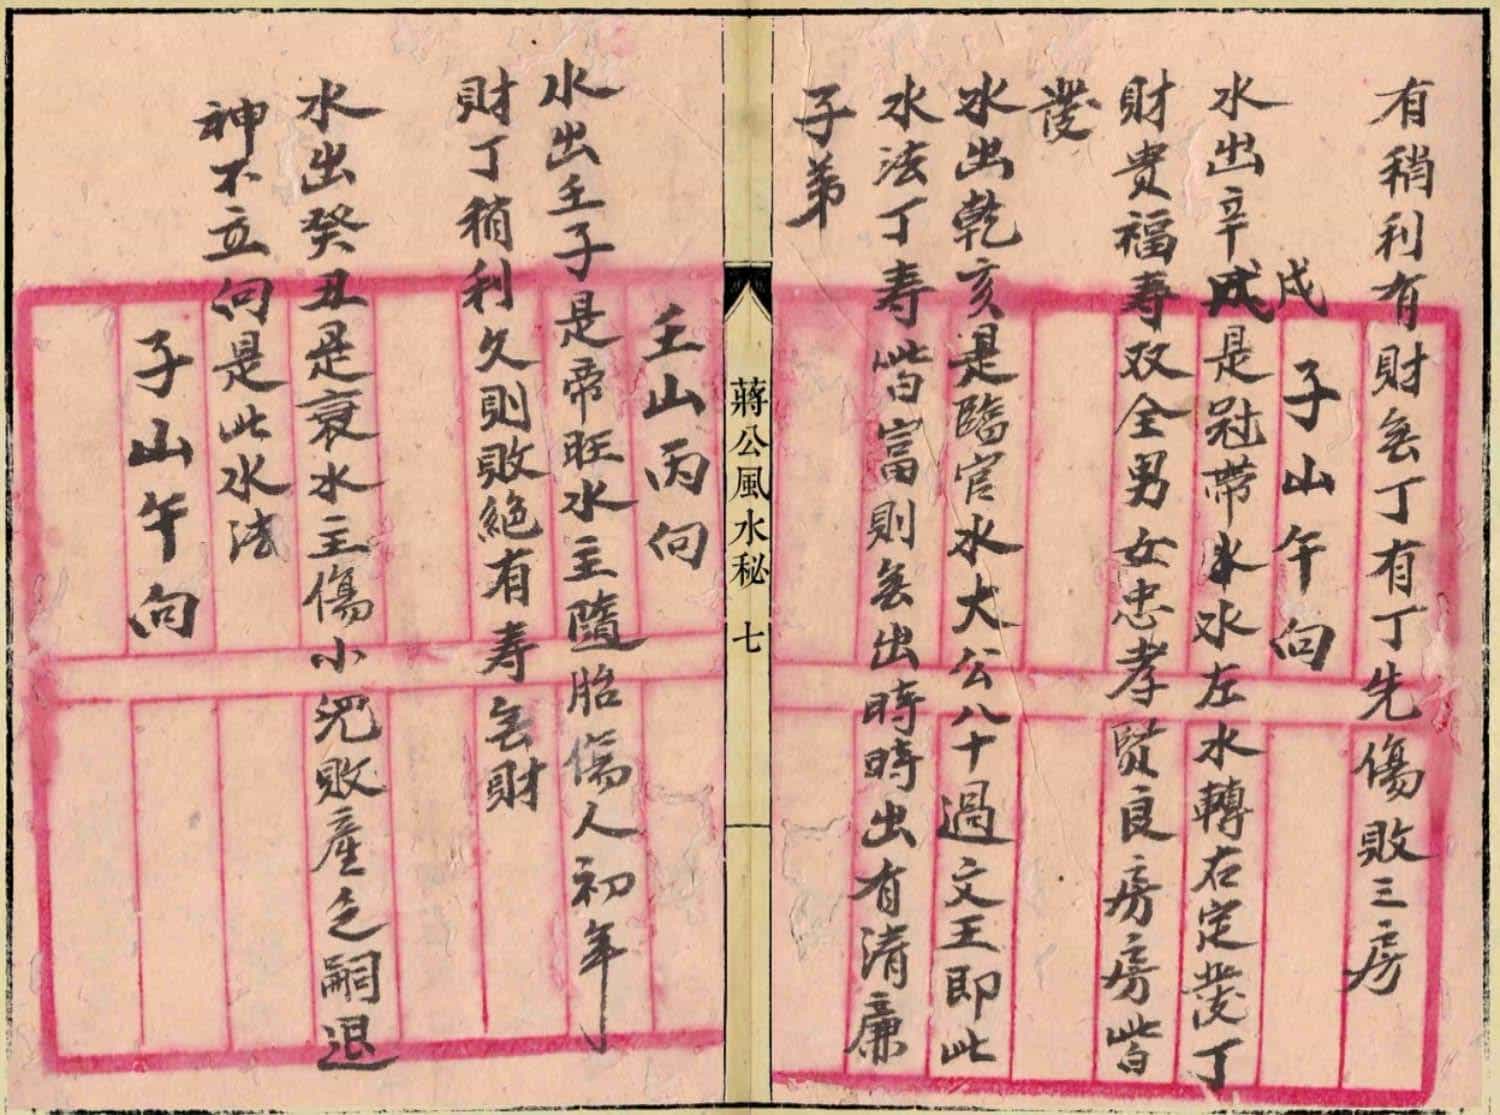 有稍利有財無丁有丁先傷敗三房
子山午向
戊
水出辛戌是冠帶水水左水轉右定發丁
財貴福寿双全男女忠孝賢良房房皆
發
水出乾亥是臨官水大公八十過文王即此
水法丁寿皆富則無出時時出有清廉
子弟
蔣公風水秘 七
壬山丙向
水出壬子是帝旺水主隨胎傷人初年
財丁稍利久則敗絕有寿無財
水出癸丑是衰水主傷小兒敗產乏嗣退
神不立向是此水法
子山午向